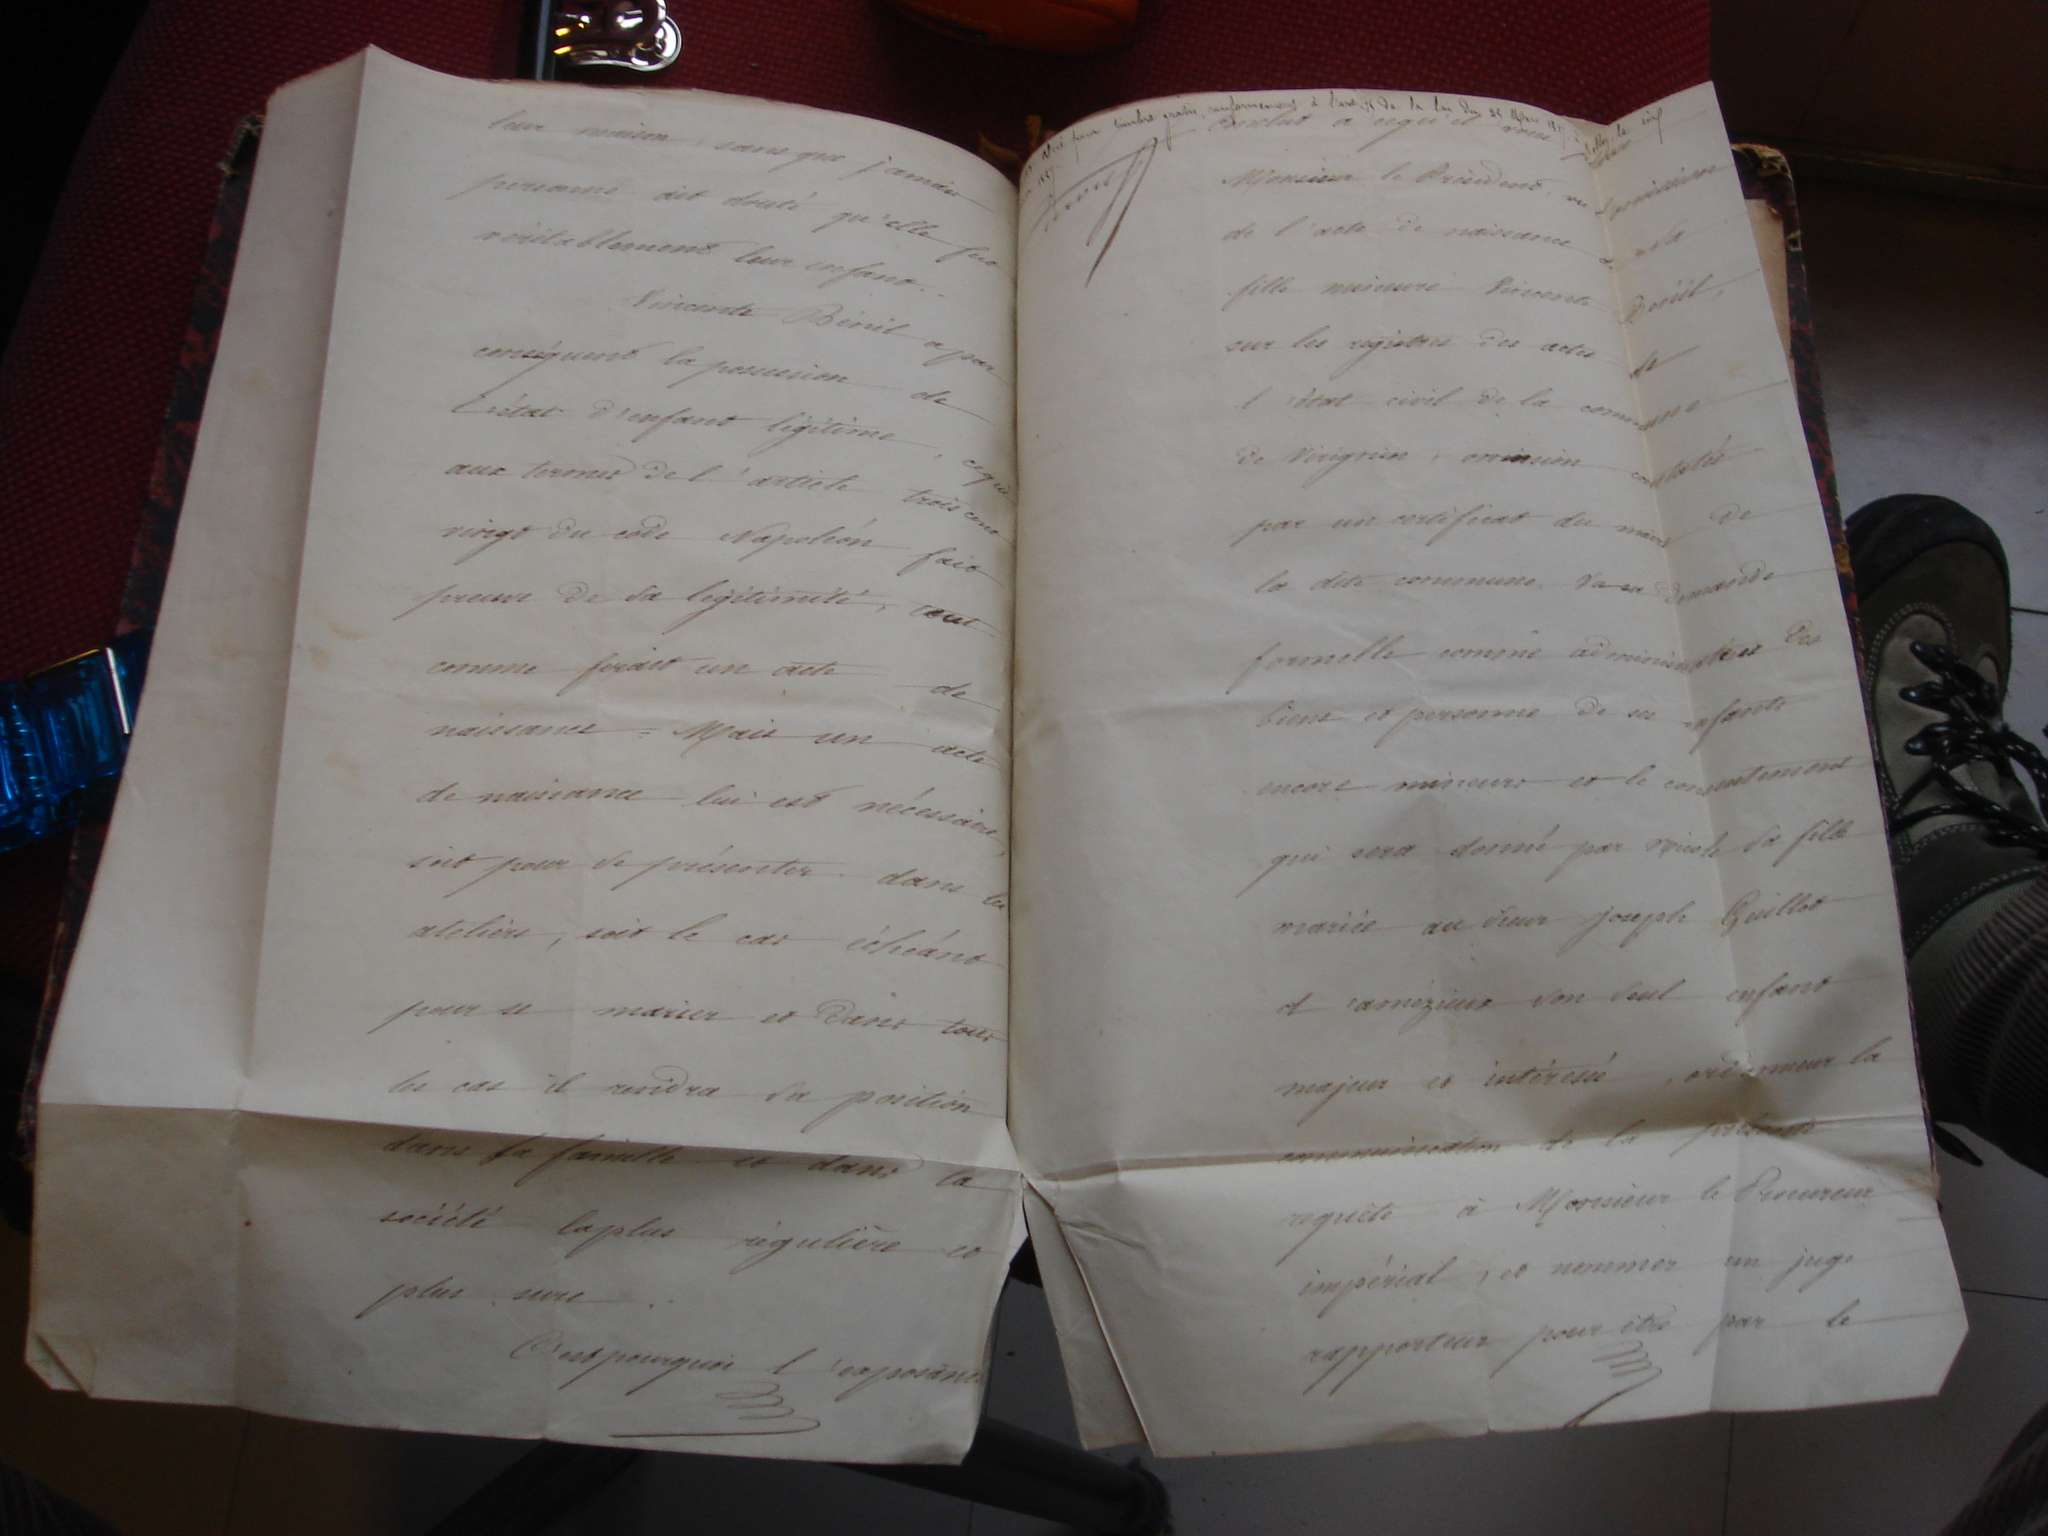 leur maison, sans que jamais
personne ait douté qu'elle fut
véritablement leur enfant..
Vincente Bénil a par
conséquent la possession de
l'état d'enfant légitime, ce qui
aux termes de l'article trois cent
vingt du code Napoléon fait
preuve de sa légitimité, tout
comme ferait un acte de
naissance = Mais un acte
de naissance lui est nécessaire,
soit pour se présenter dans les
ateliers, soit le cas échéant
pour se marier et dans tous
les cas il rendra sa position
dans sa famille et dans la
société la plus régulière et
plus sure ..
C'est pourquoi l'exposant
Visé pour timbre gratis, conformément à l'art de la loi du 25 Mars
conclut à ce qu'il vous
Monsieur le Président, vu l'omission
de l'acte de naissance de sa
fille mineure Vincente Bénil,
sur les registres des actes de
l'état civil de la commune
de Virignin, omission constatée
par un certificat du maire de
la dite commune. Vu sa demande
formelle comme administrateur des
biens et personne de ses enfants
encore mineurs et le consentement
qui sera donné par sa fille
mariée au sieur joseph Guillot
et son seul enfant
majeur et intéressé, ordonner la
communication de la présente
requête à Monsieur le Procureur
impérial, et nommer un juge
rapporteur pour être par le